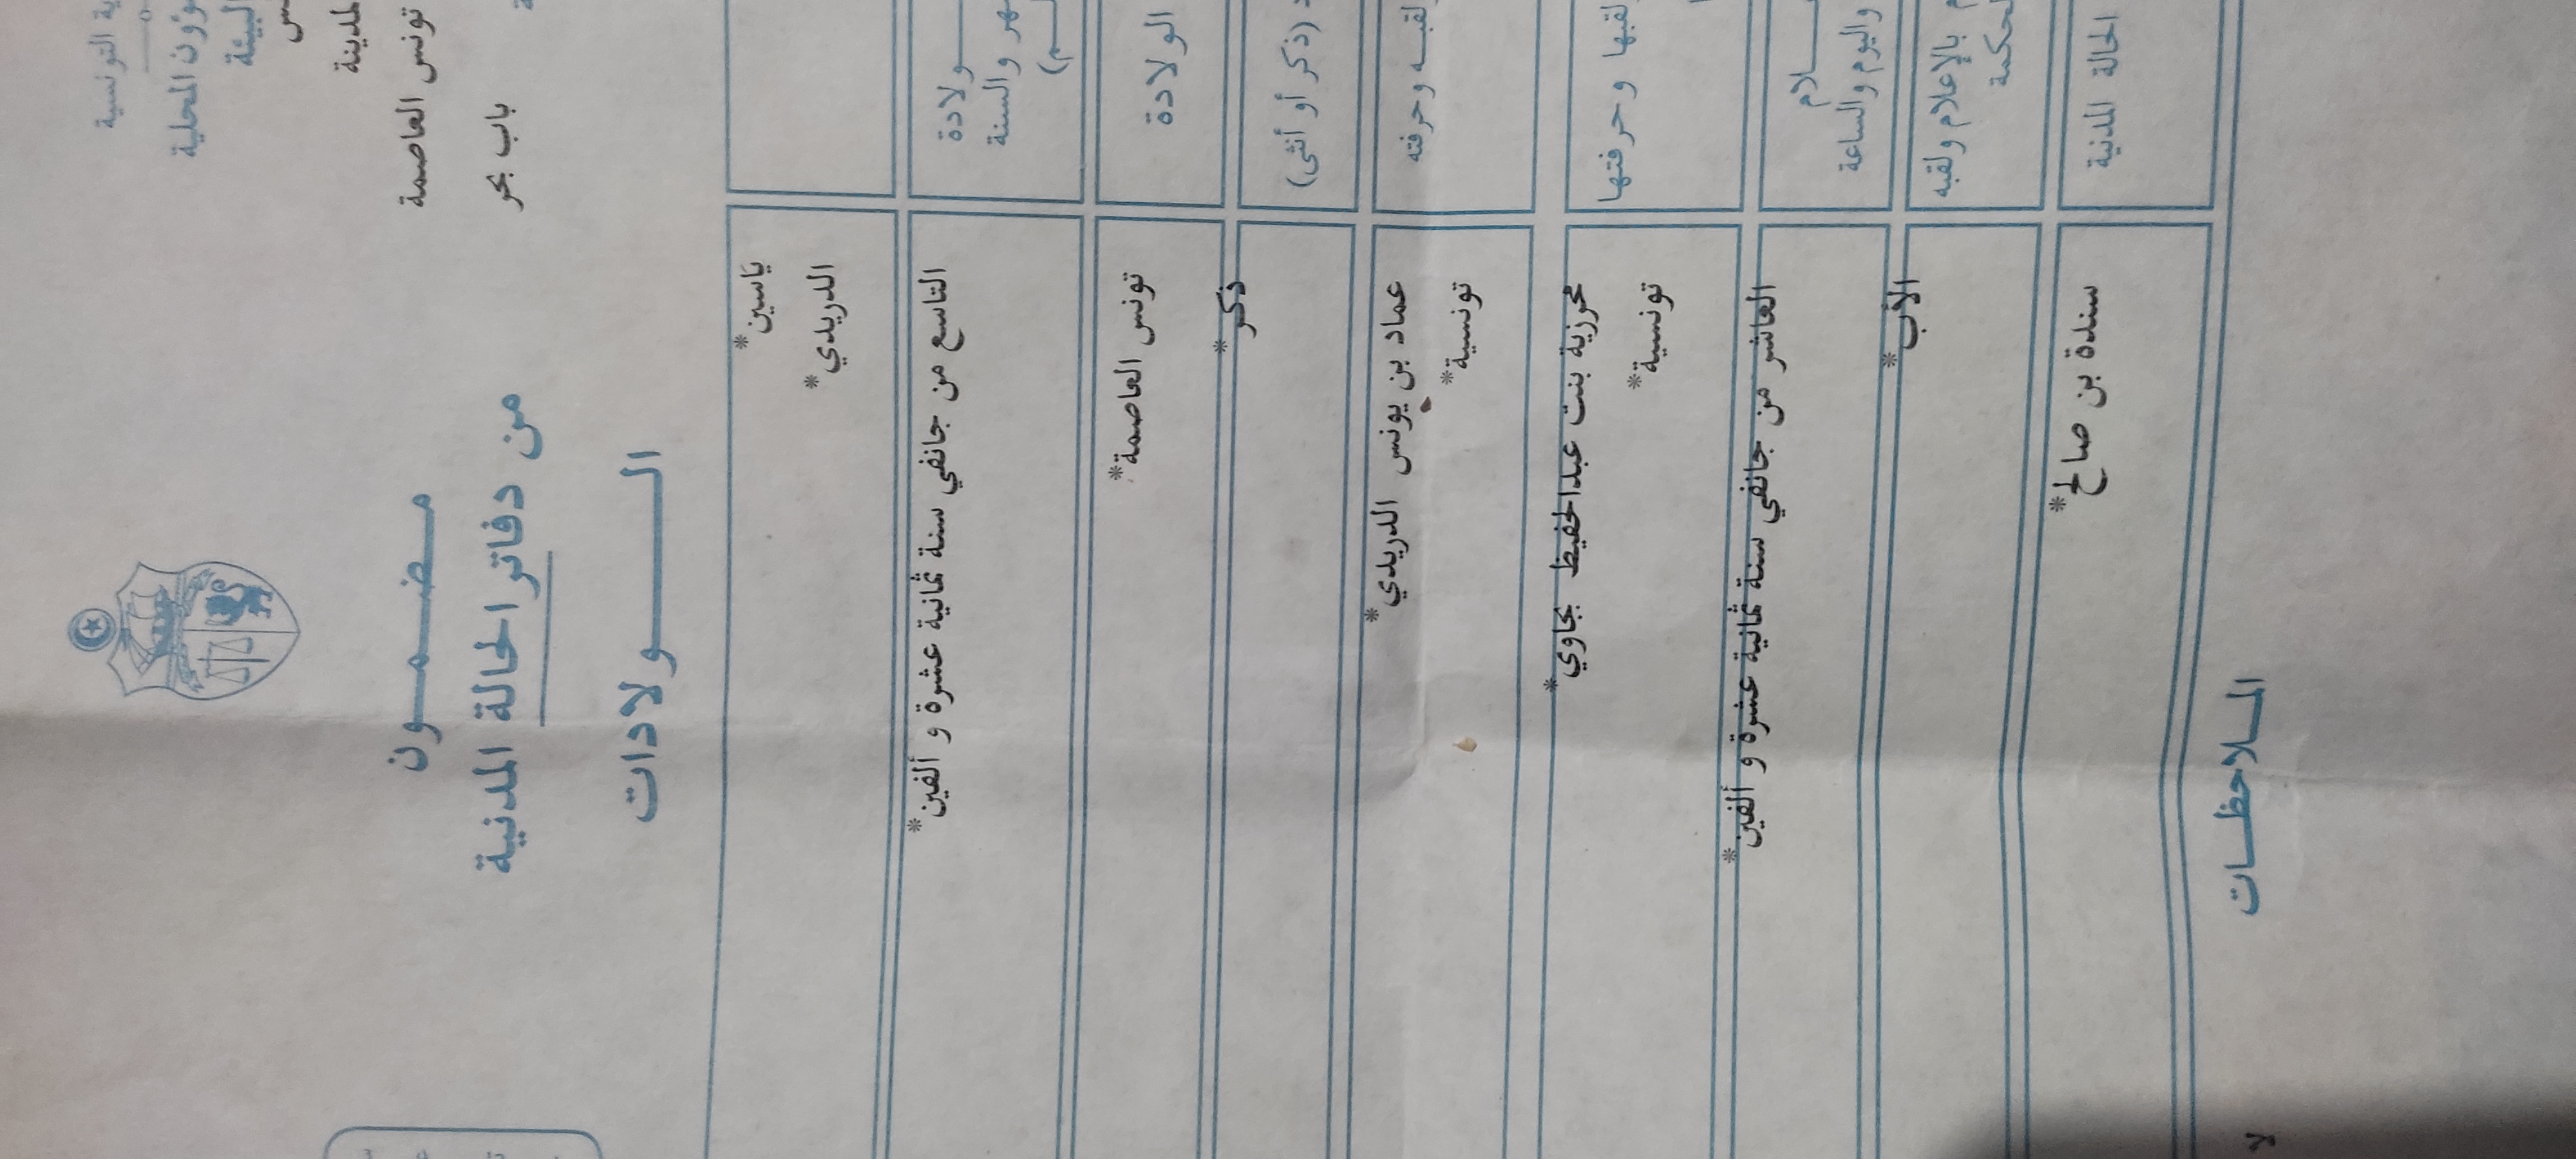 التونسية
المحلية
البيئة
المدينة
تونس العاصمة
باب بحر
مضمون
من دفاتر الحالة المدنية
الولادات
ياسين*
الدريدي*
ولادة
والسنة
التاسع من جانفي سنة ثمانية عشرة و ألفين*
الولادة
تونس العاصمة*
(ذكر أو أنثى)
ذكر*
لقبه وحرفته
عماد بن يونس الدريدي*
تونسية*
لقبها وحرفتها
محرزية بنت عبدالحفيظ بجاوي*
تونسية*
واليوم والساعة
العاشر من جانفي سنة ثمانية عشرة و ألفين*
بالإعلام ولقبه
الأب*
الحالة المدنية
سندة بن صالح*
الملاحظات